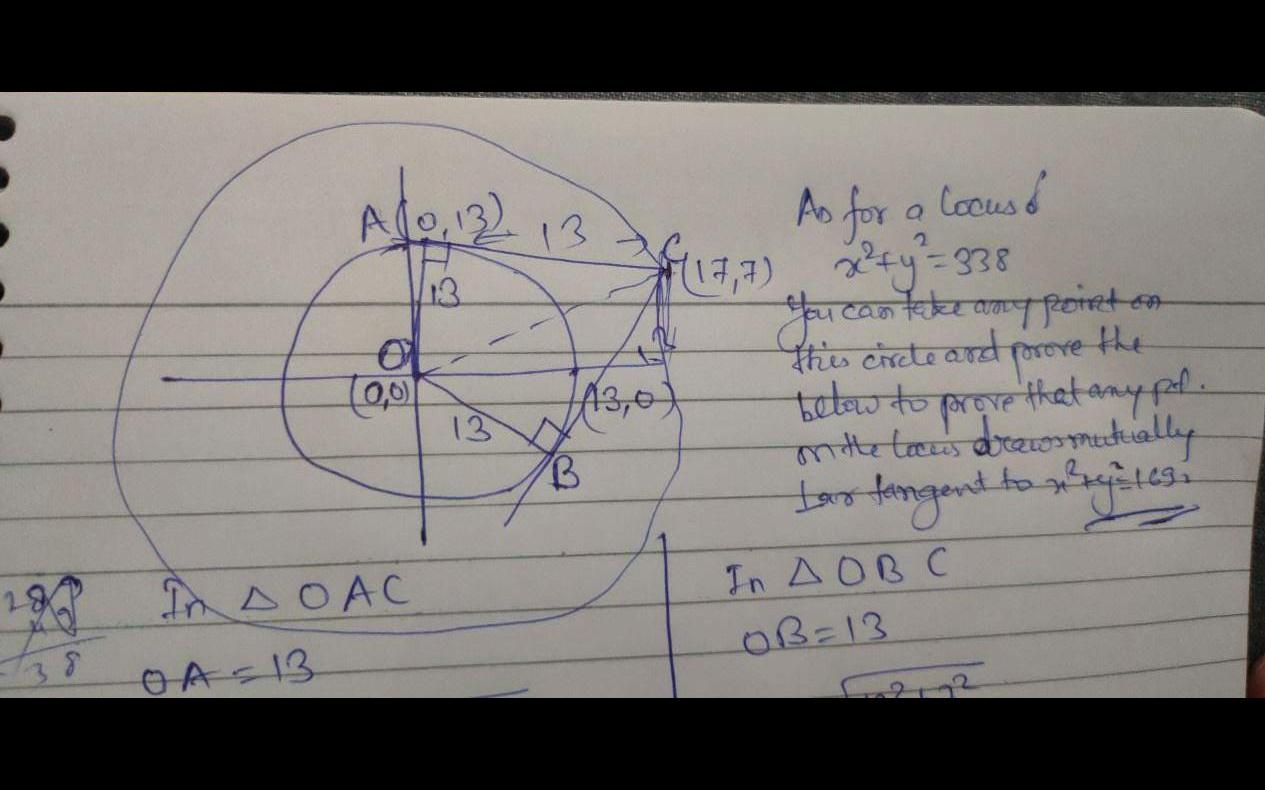 A(0,13)
13
C(17,7)
13
O
(0,0)
(13,0)
13
B
As for a locus of
x²+y²=338
You can take any point on
this circle and prove the
below to prove that any pt.
on the locus draws mutually
⊥ar tangent to x²+y²=169.
In △OAC
OA=13
In △OBC
OB=13
38